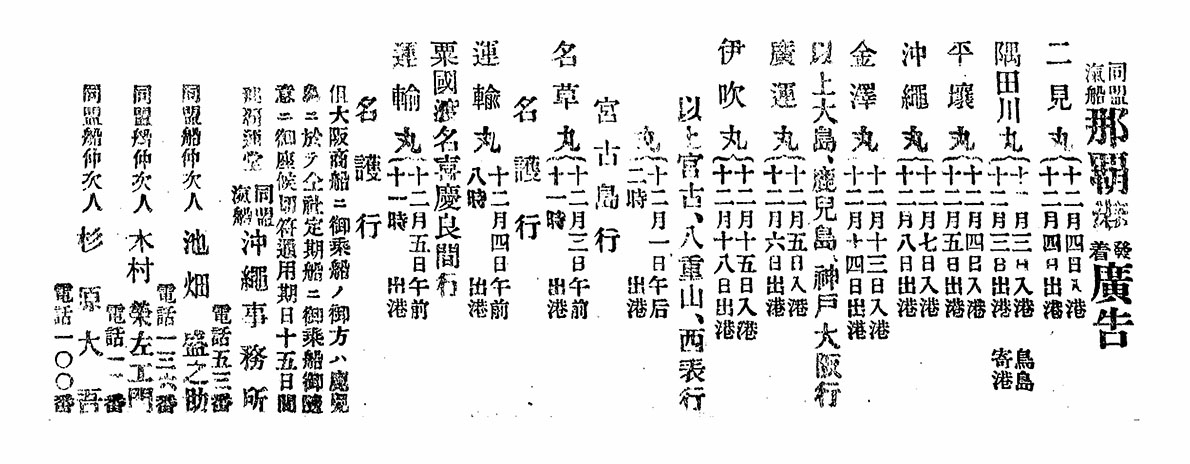 同盟汽船那覇港發着廣告
二見丸 十二月四日入港 十二月四日出港
隅田川丸 十二月三日入港 十二月三日出港 鳥島寄港
平壤丸 十二月四日入港 十二月五日出港
沖繩丸 十二月七日入港 十二月八日出港
金澤丸 十二月十三日入港 十二月十四日出港
以上大島、鹿兒島、神戸大阪行
廣運丸 十二月五日入港 十二月六日出港
伊吹丸 十二月十五日入港 十二月十八日出港
以上宮古、八重山、西表行
丸 十二月一日午后二時出港
宮古島行
名草丸 十二月三日午前十一時出港
名護行
運輸丸 十二月四日午前八時出港
粟國渡名喜慶良間行
運輸丸 十二月五日午前十一時出港
名護行
但大阪商船ニ御乘船ノ御方ハ鹿兒
島ニ於テ仝社定期船ニ御乘船御隨
意ニ御座候切符通用期日十五日間
同盟汽船沖繩事務所
電話五三番
同盟船仲次人 池畑盛之助
電話一三六番
同盟船仲次人 木村榮左工門
電話一一番
同盟船仲次人 杉原大吾
電話一〇〇番